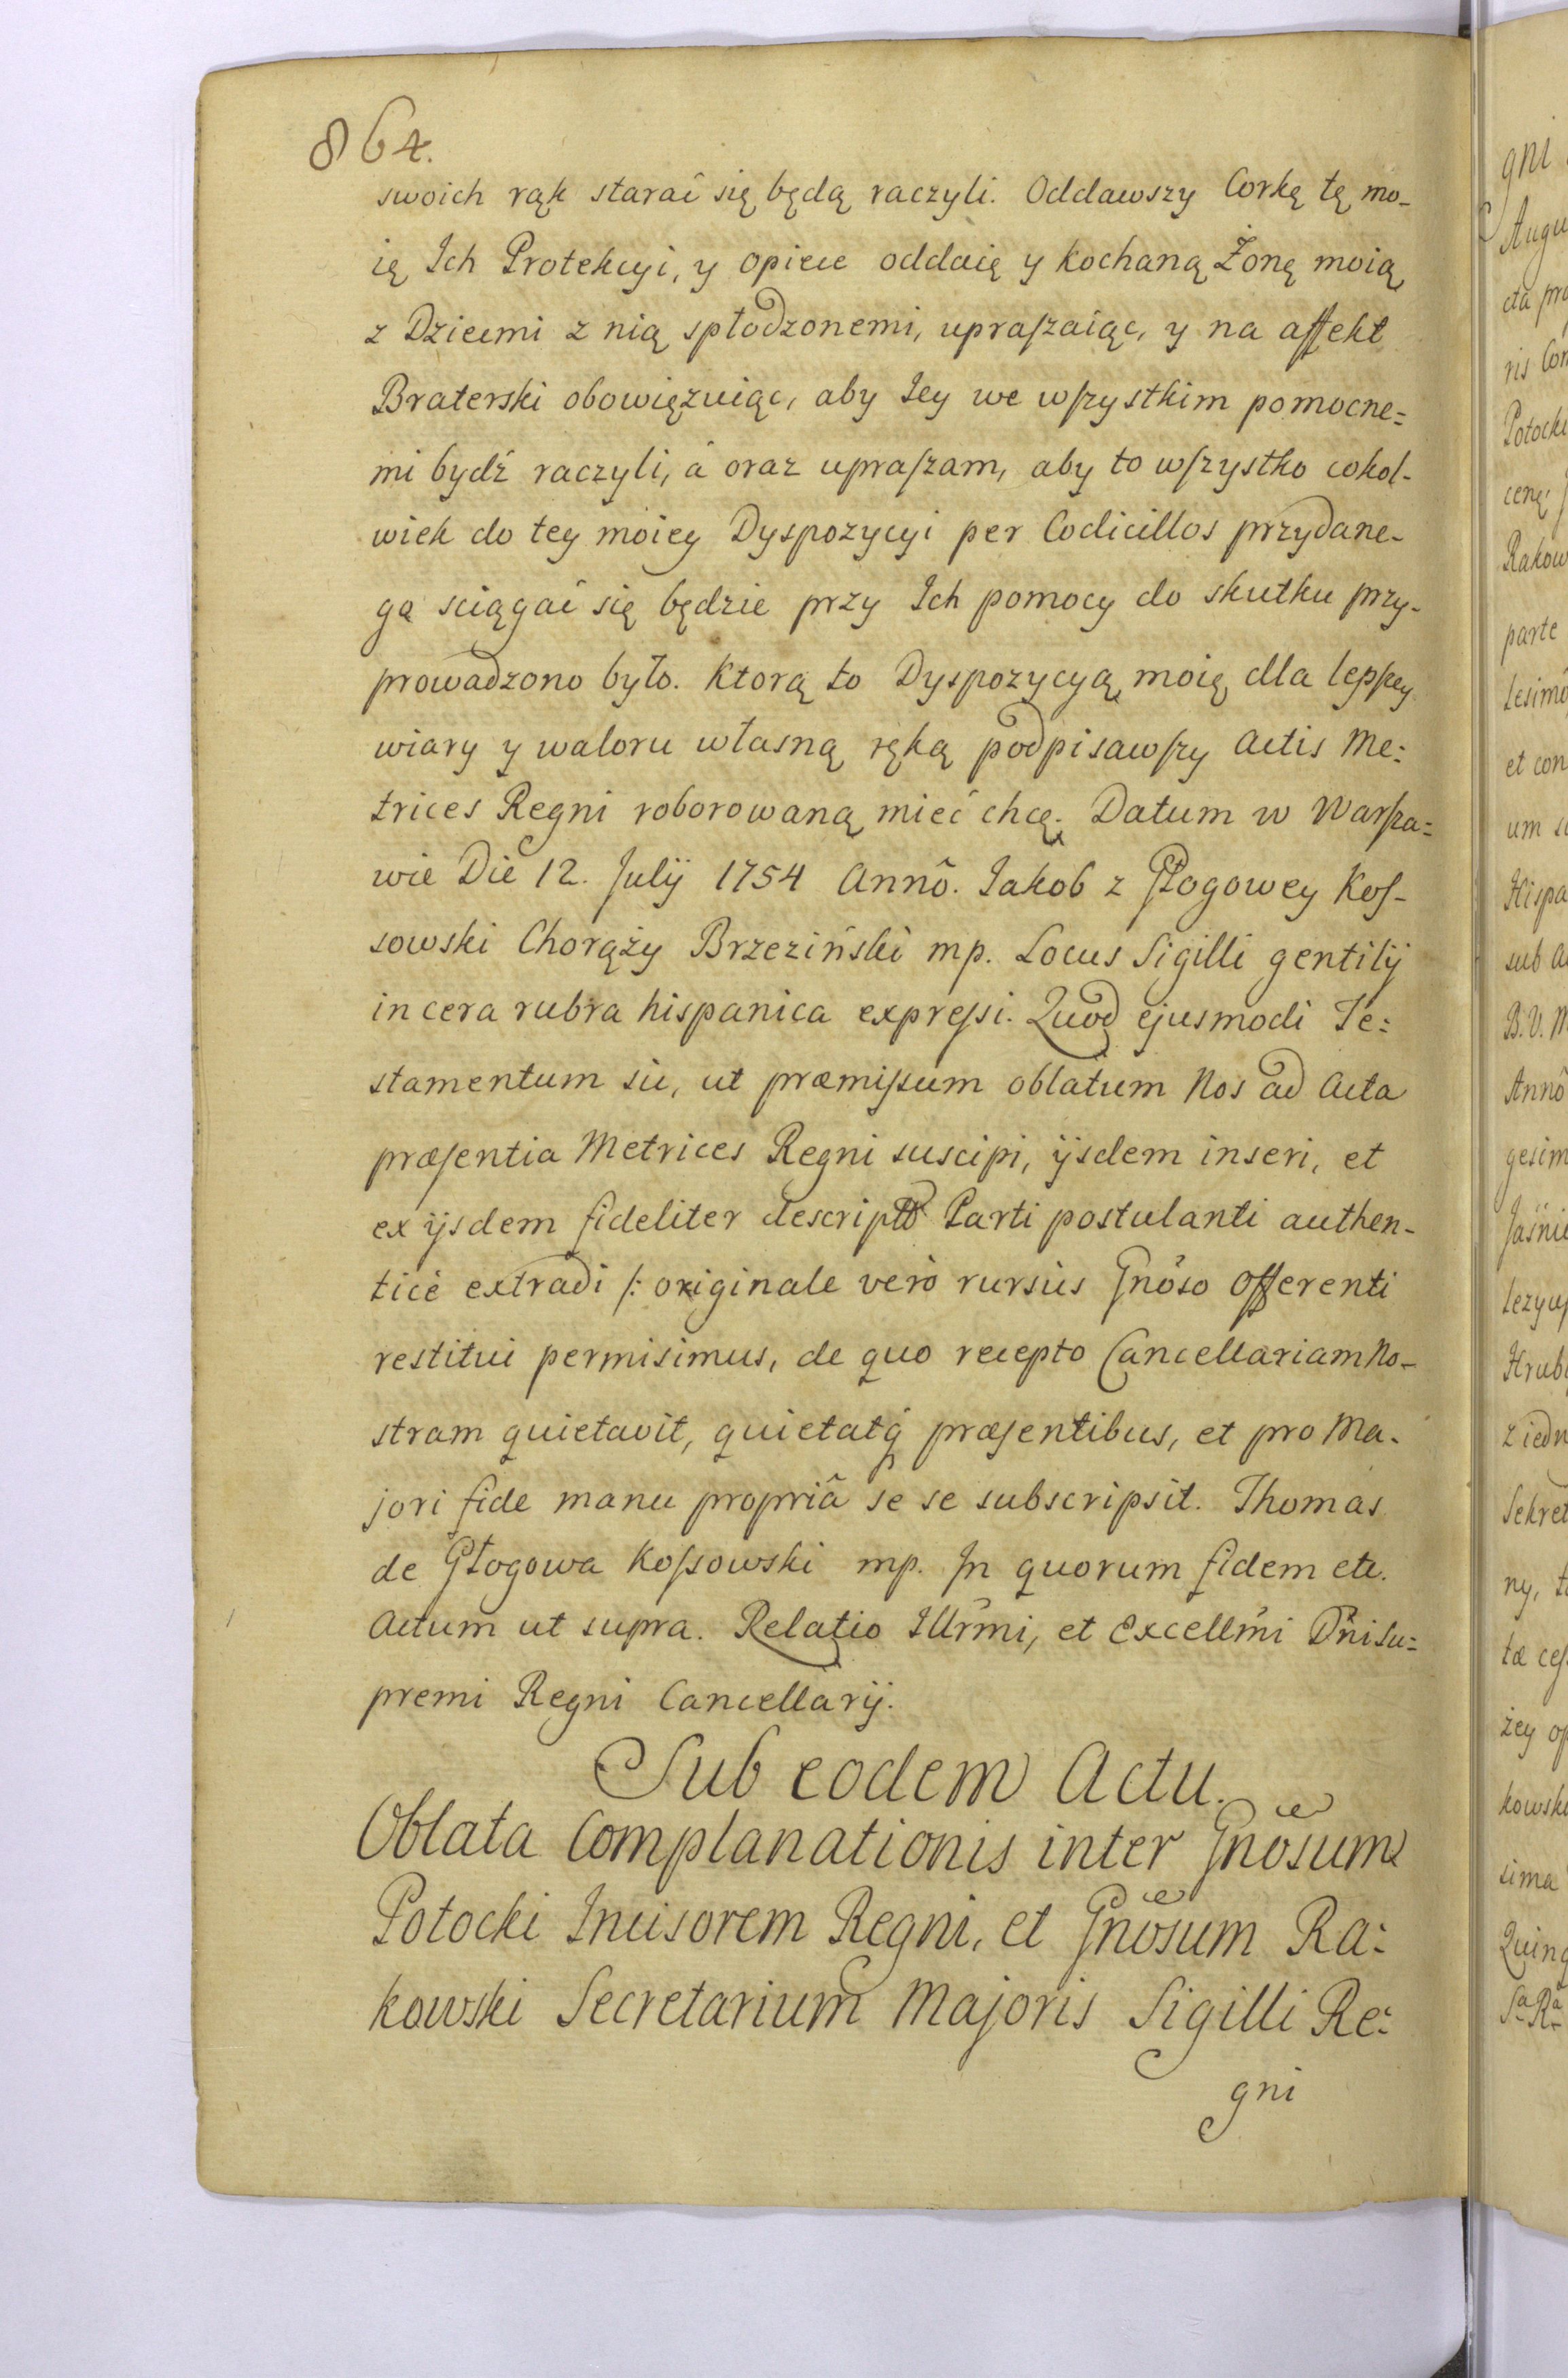 864.
swoich rąk starać się będą raczyli. Oddawszy Corkę tę mo-
ię Ich Protekcyi, y opiece oddaię y kochaną Żonę moią
z Dziećmi z nią spłodzonemi, upraszaiąc, y na affekt
Braterski obowięzuiąc, aby Iey we wszystkim pomocne=
mi bydź raczyli, á oraz upraszam, aby to wszystko cokol-
wiek do tey moiey Dyspozycyi per Codicillos przydane-
go sciągać się będzie przy Ich pomocy do skutku przy-
prowadzono było. Ktorą to Dyspozycyą moię dla lepszey
wiary y waloru własną ręką podpisawszy Actis Me=
trices Regni roborowaną mieć chcę. Datum w Warsza=
wie Die 12. Julÿ 1754 Annô. Iakob z Głogowey Kos-
sowski Chorąży Brzeziński mp. Locus Sigilli gentilÿ
in cera rubra hispanica expressi. Quod ejusmodi Te=
stamentum sic, ut præmissum oblatum Nos ad Acta
præsentia Metrices Regni suscipi, ÿsdem inseri, et
ex ÿsdem fideliter descriptū Parti postulanti authen-
ticè extradi /: originale verò rursùs Gnoso Offerenti
restitui permisimus, de quo recepto Cancellariam No-
stram quietavit, quietatq́ præsentibus, et pro Ma-
jori fide manu propriâ se se subscripsit. Thomas
de Głogowa Kossowski mp. In quorum fidem etc.
Actum ut supra. Relatio Illrmi, et Excellmi Dni Su=
premi Regni Cancellarÿ.
Sub eodem Actu.
Oblata Complanationis inter Gnosum
Potocki Incisorem Regni, et Gnosum Ra=
kowski Secretarium Majoris Sigilli Re=
gni
gni
Augu
cta pr
ris Con
Potocki
cenę
Rakow
parte
lesimo
et con
um s
Hispa
sub a
B. V. M
Annô
gesim
Jaśnie
Hrub
z iedn
Sekret
ny, t
tæ ces
żey op
kowski
sima
Quing